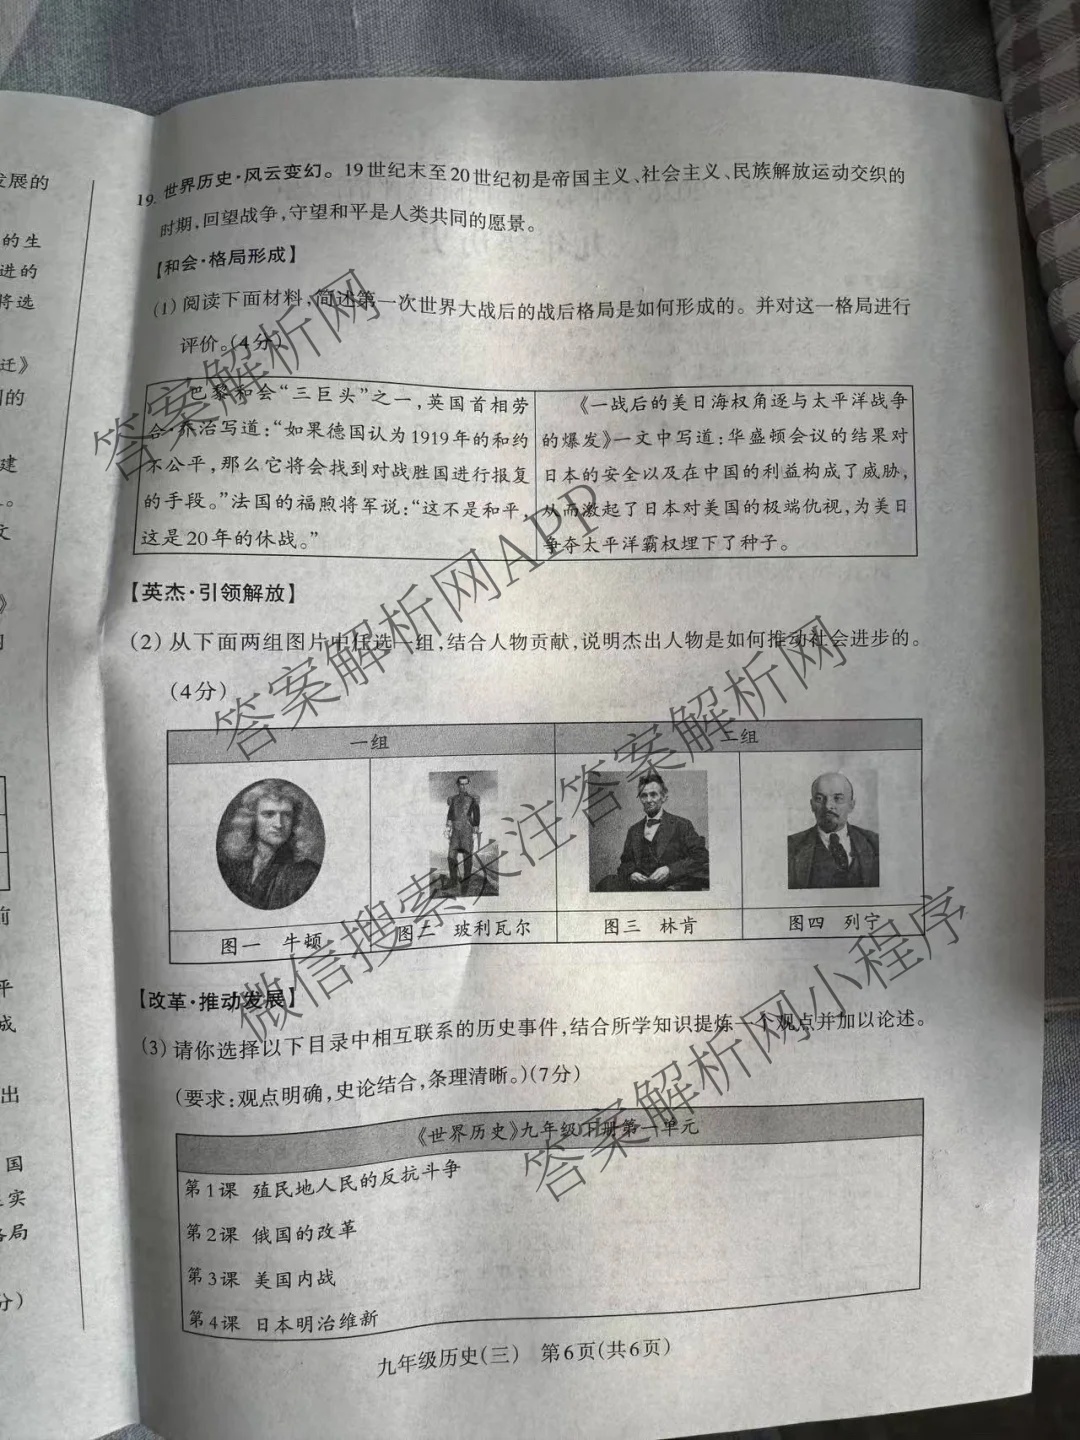 发展的
的生
进的
将选
迁》
国的
建
。
文
》
前
平
成
出
国
实
局
分）
19. 世界历史·风云变幻。19世纪末至20世纪初是帝国主义、社会主义、民族解放运动交织的
时期,回望战争,守望和平是人类共同的愿景。
【和会·格局形成】
(1) 阅读下面材料,简述第一次世界大战后的战后格局是如何形成的。并对这一格局进行
评价。(4分)
巴黎和会“三巨头”之一,英国首相劳
合·乔治写道:“如果德国认为1919年的和约
不公平,那么它将会找到对战胜国进行报复
的手段。”法国的福煦将军说:“这不是和平,
这是20年的休战。”
《一战后的美日海权角逐与太平洋战争
的爆发》一文中写道:华盛顿会议的结果对
日本的安全以及在中国的利益构成了威胁,
从而激起了日本对美国的极端仇视,为美日
争夺太平洋霸权埋下了种子。
【英杰·引领解放】
(2) 从下面两组图片中任选一组,结合人物贡献,说明杰出人物是如何推动社会进步的。
(4分)
一组 二组
图一 牛顿 图二 玻利瓦尔 图三 林肯 图四 列宁
【改革·推动发展】
(3) 请你选择以下目录中相互联系的历史事件,结合所学知识提炼一个观点并加以论述。
(要求:观点明确,史论结合,条理清晰。)(7分)
《世界历史》九年级下册第一单元
第1课 殖民地人民的反抗斗争
第2课 俄国的改革
第3课 美国内战
第4课 日本明治维新
九年级历史(三) 第6页(共6页)
答案解析网
答案解析网APP
微信搜索关注答案解析网
答案解析网小程序